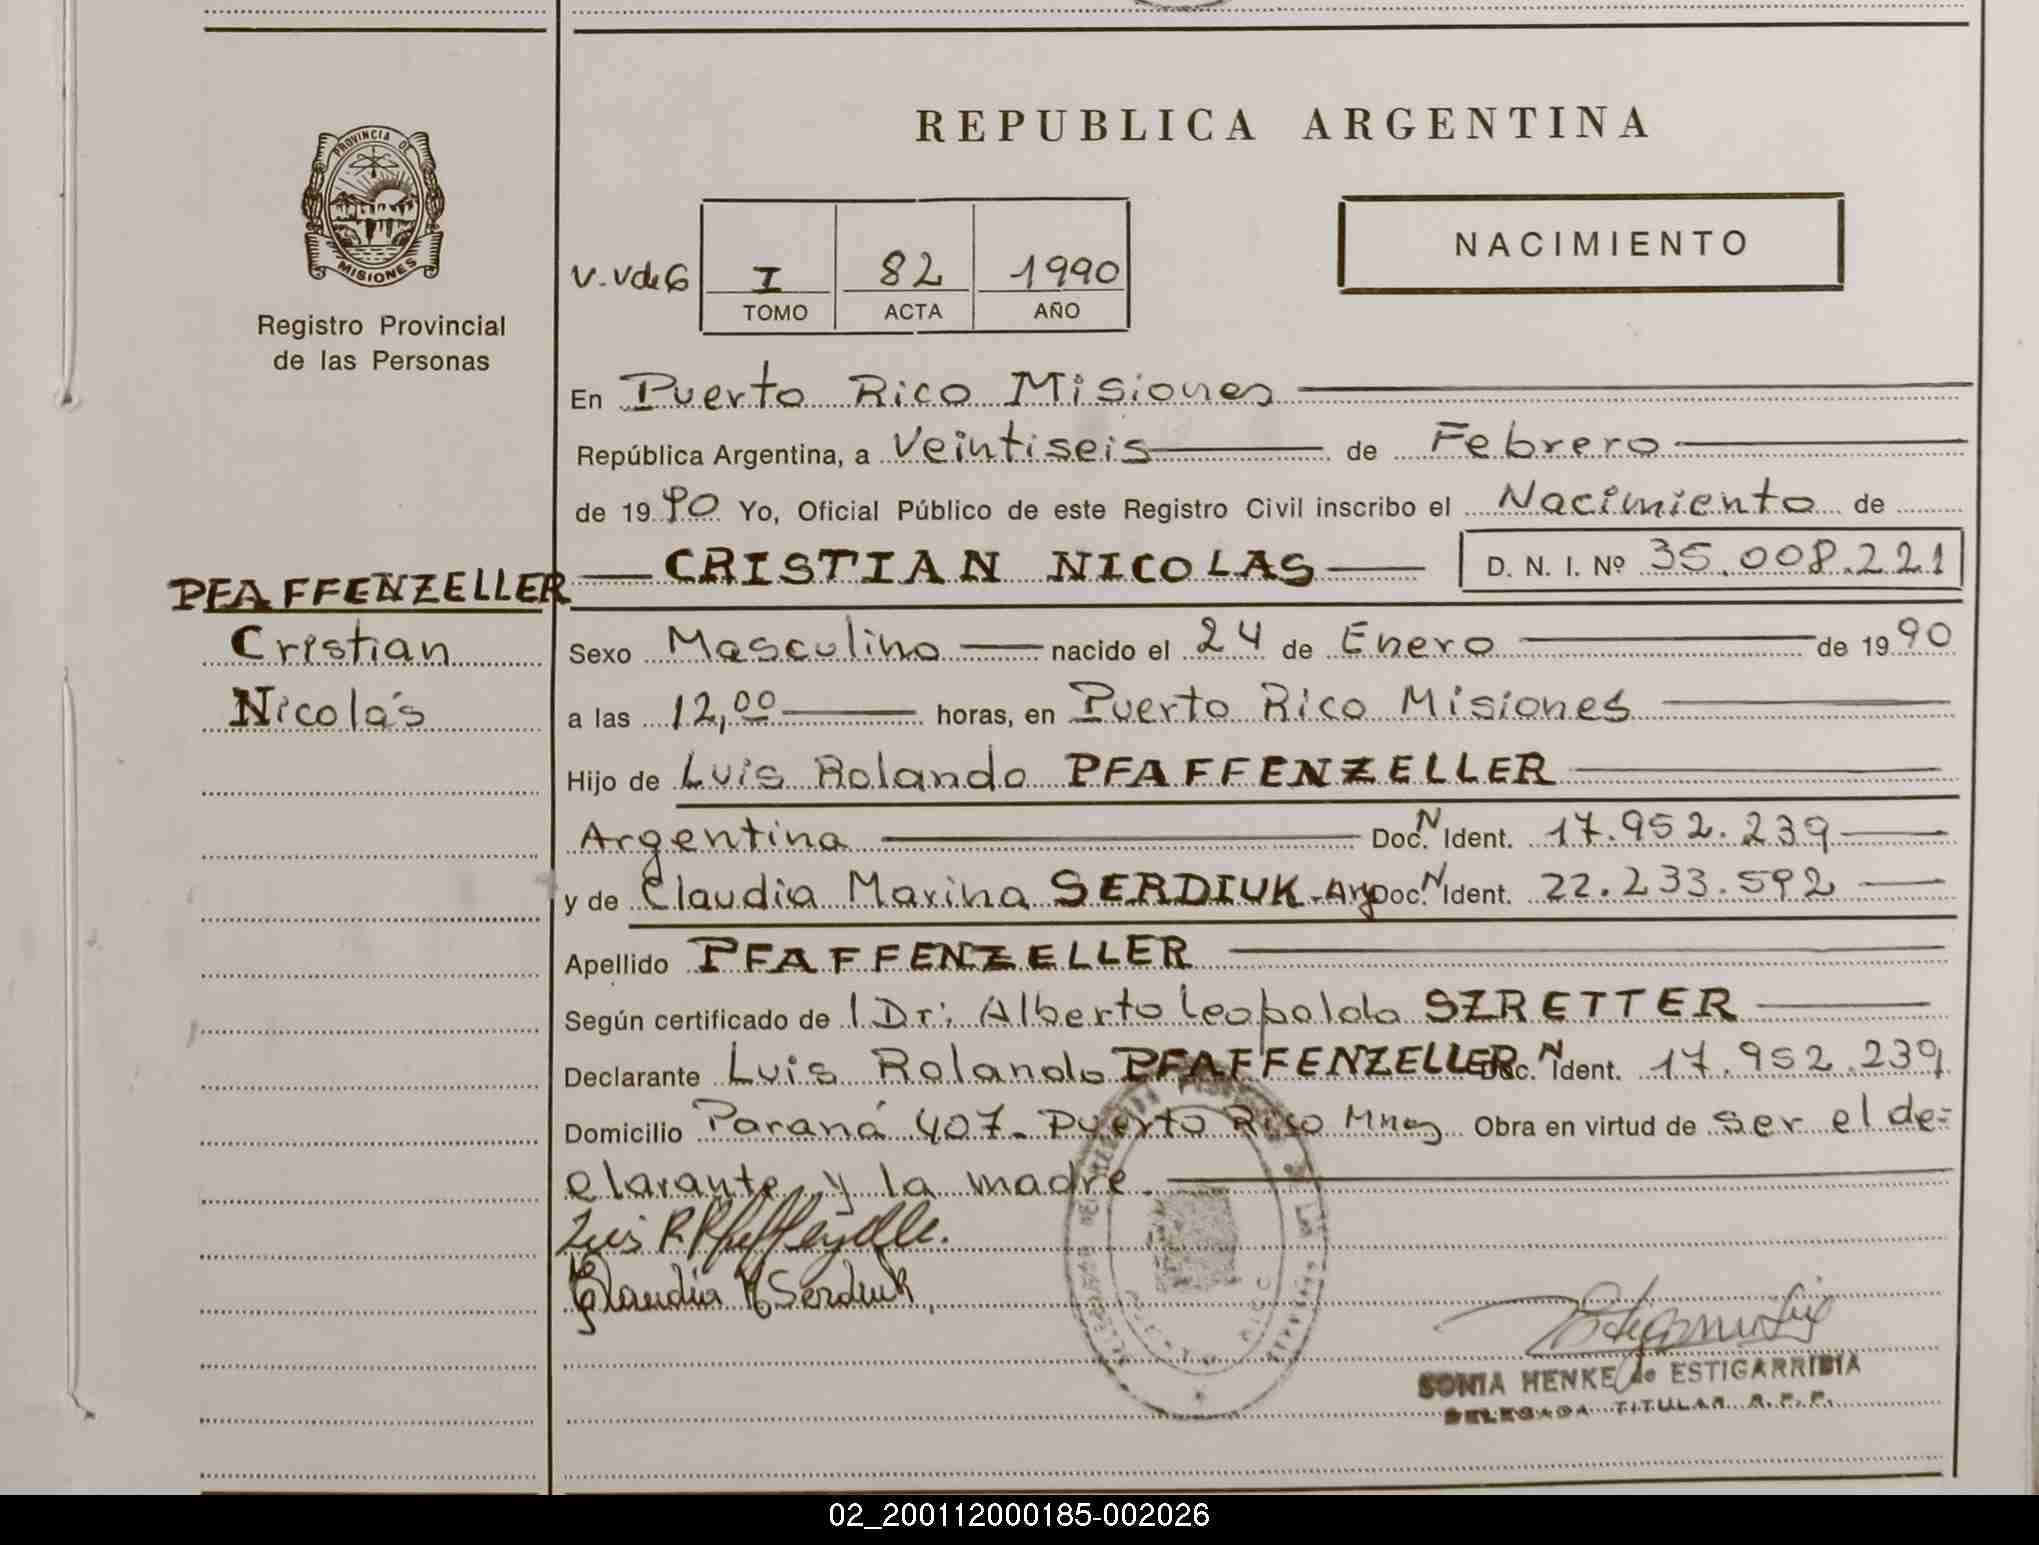 PROVINCIA DE
MISIONES
Registro Provincial
de las Personas
PFAFFENZELLER
Cristian
Nicolás
REPUBLICA ARGENTINA
NACIMIENTO
V.VdeG I 82 1990
TOMO ACTA AÑO
En Puerto Rico Misiones
República Argentina, a Veintiseis de Febrero
de 1990 Yo, Oficial Público de este Registro Civil inscribo el Nacimiento de
CRISTIAN NICOLAS D. N. I. Nº 35.008.221
Sexo Masculino nacido el 24 de Enero de 1990
a las 12,00 horas, en Puerto Rico Misiones
Hijo de Luis Rolando PFAFFENZELLER
Argentina Doc. N Ident. 17.952.239
y de Claudia Marina SERDIUK-Arg Doc. N Ident. 22.233.592
Apellido PFAFFENZELLER
Según certificado de l Dr: Alberto Leopoldo SZRETTER
Declarante Luis Rolando PFAFFENZELLER Doc. N Ident. 17.952.239
Domicilio Paraná 407- Puerto Rico Mnes Obra en virtud de ser el de=
clarante y la madre.
Claudia M Serdiuk
SONIA HENKE de ESTIGARRIBIA
DELEGADA TITULAR R.P.P.
02_200112000185-002026